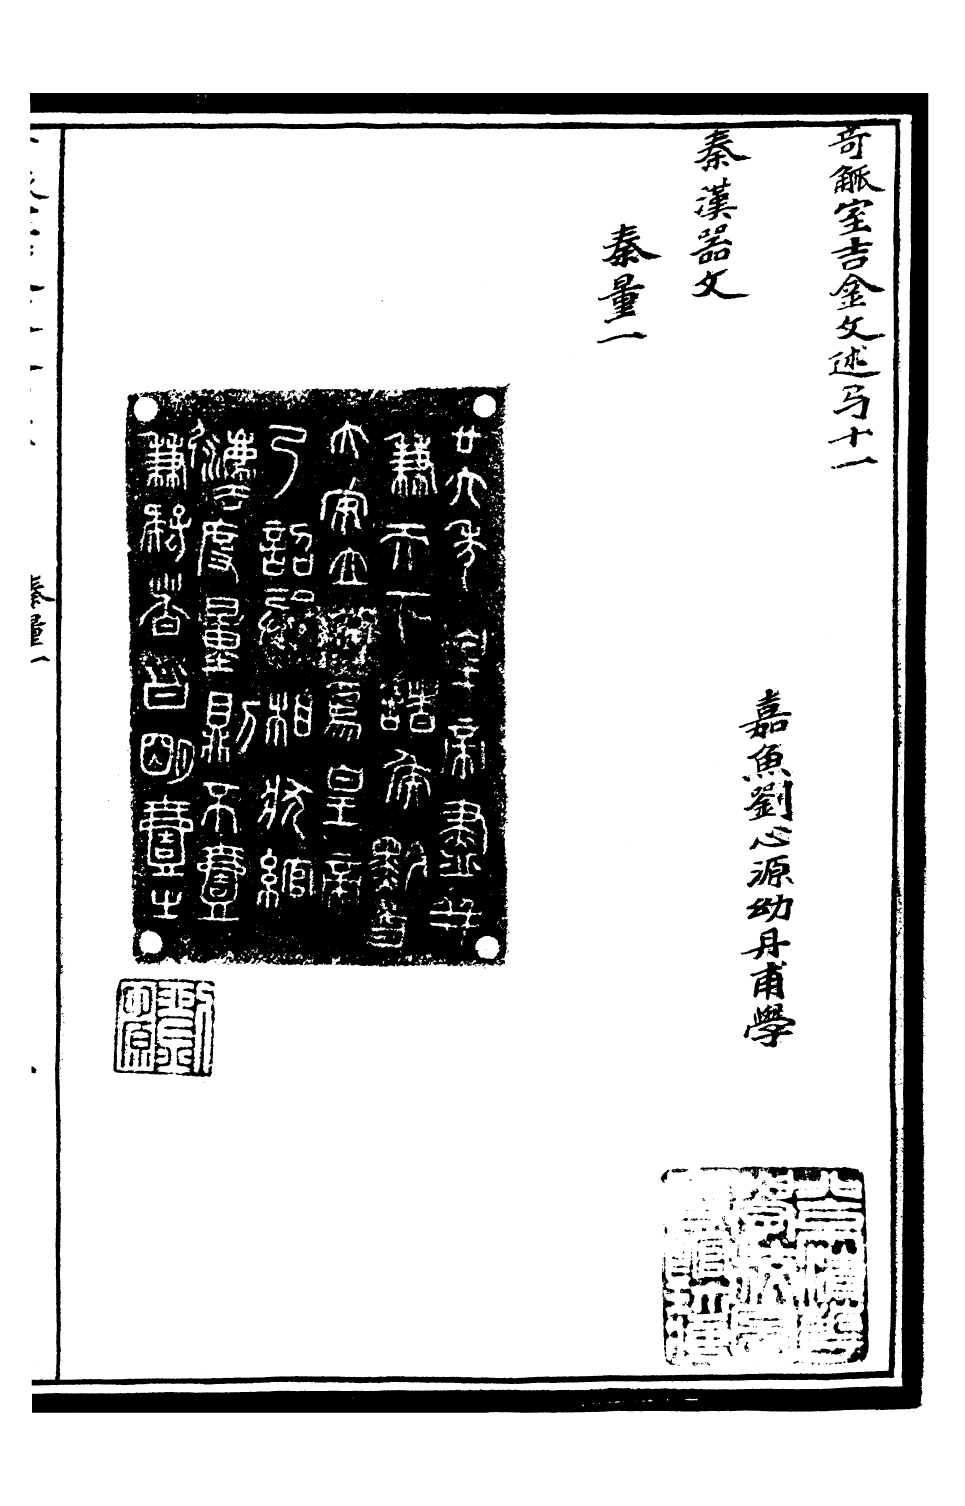 奇觚室吉金文述弓十一
嘉魚劉心源幼丹甫學
秦漢器文
秦量一
廿六年皇帝盡并
兼天下諸侯黔首
大安立號爲皇帝
乃詔丞相狀綰
灋度量則不壹
歉疑者皆明壹之
秦量一